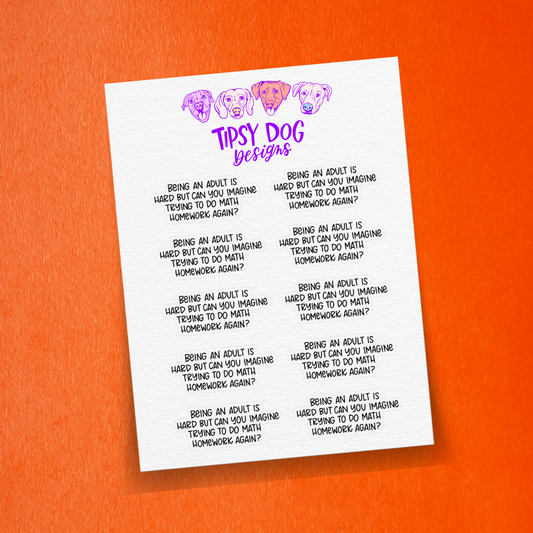 TIPSY DOG
Designs
BEING AN ADULT IS
HARD BUT CAN YOU IMAGINE
TRYING TO DO MATH
HOMEWORK AGAIN?
BEING AN ADULT IS
HARD BUT CAN YOU IMAGINE
TRYING TO DO MATH
HOMEWORK AGAIN?
BEING AN ADULT IS
HARD BUT CAN YOU IMAGINE
TRYING TO DO MATH
HOMEWORK AGAIN?
BEING AN ADULT IS
HARD BUT CAN YOU IMAGINE
TRYING TO DO MATH
HOMEWORK AGAIN?
BEING AN ADULT IS
HARD BUT CAN YOU IMAGINE
TRYING TO DO MATH
HOMEWORK AGAIN?
BEING AN ADULT IS
HARD BUT CAN YOU IMAGINE
TRYING TO DO MATH
HOMEWORK AGAIN?
BEING AN ADULT IS
HARD BUT CAN YOU IMAGINE
TRYING TO DO MATH
HOMEWORK AGAIN?
BEING AN ADULT IS
HARD BUT CAN YOU IMAGINE
TRYING TO DO MATH
HOMEWORK AGAIN?
BEING AN ADULT IS
HARD BUT CAN YOU IMAGINE
TRYING TO DO MATH
HOMEWORK AGAIN?
BEING AN ADULT IS
HARD BUT CAN YOU IMAGINE
TRYING TO DO MATH
HOMEWORK AGAIN?